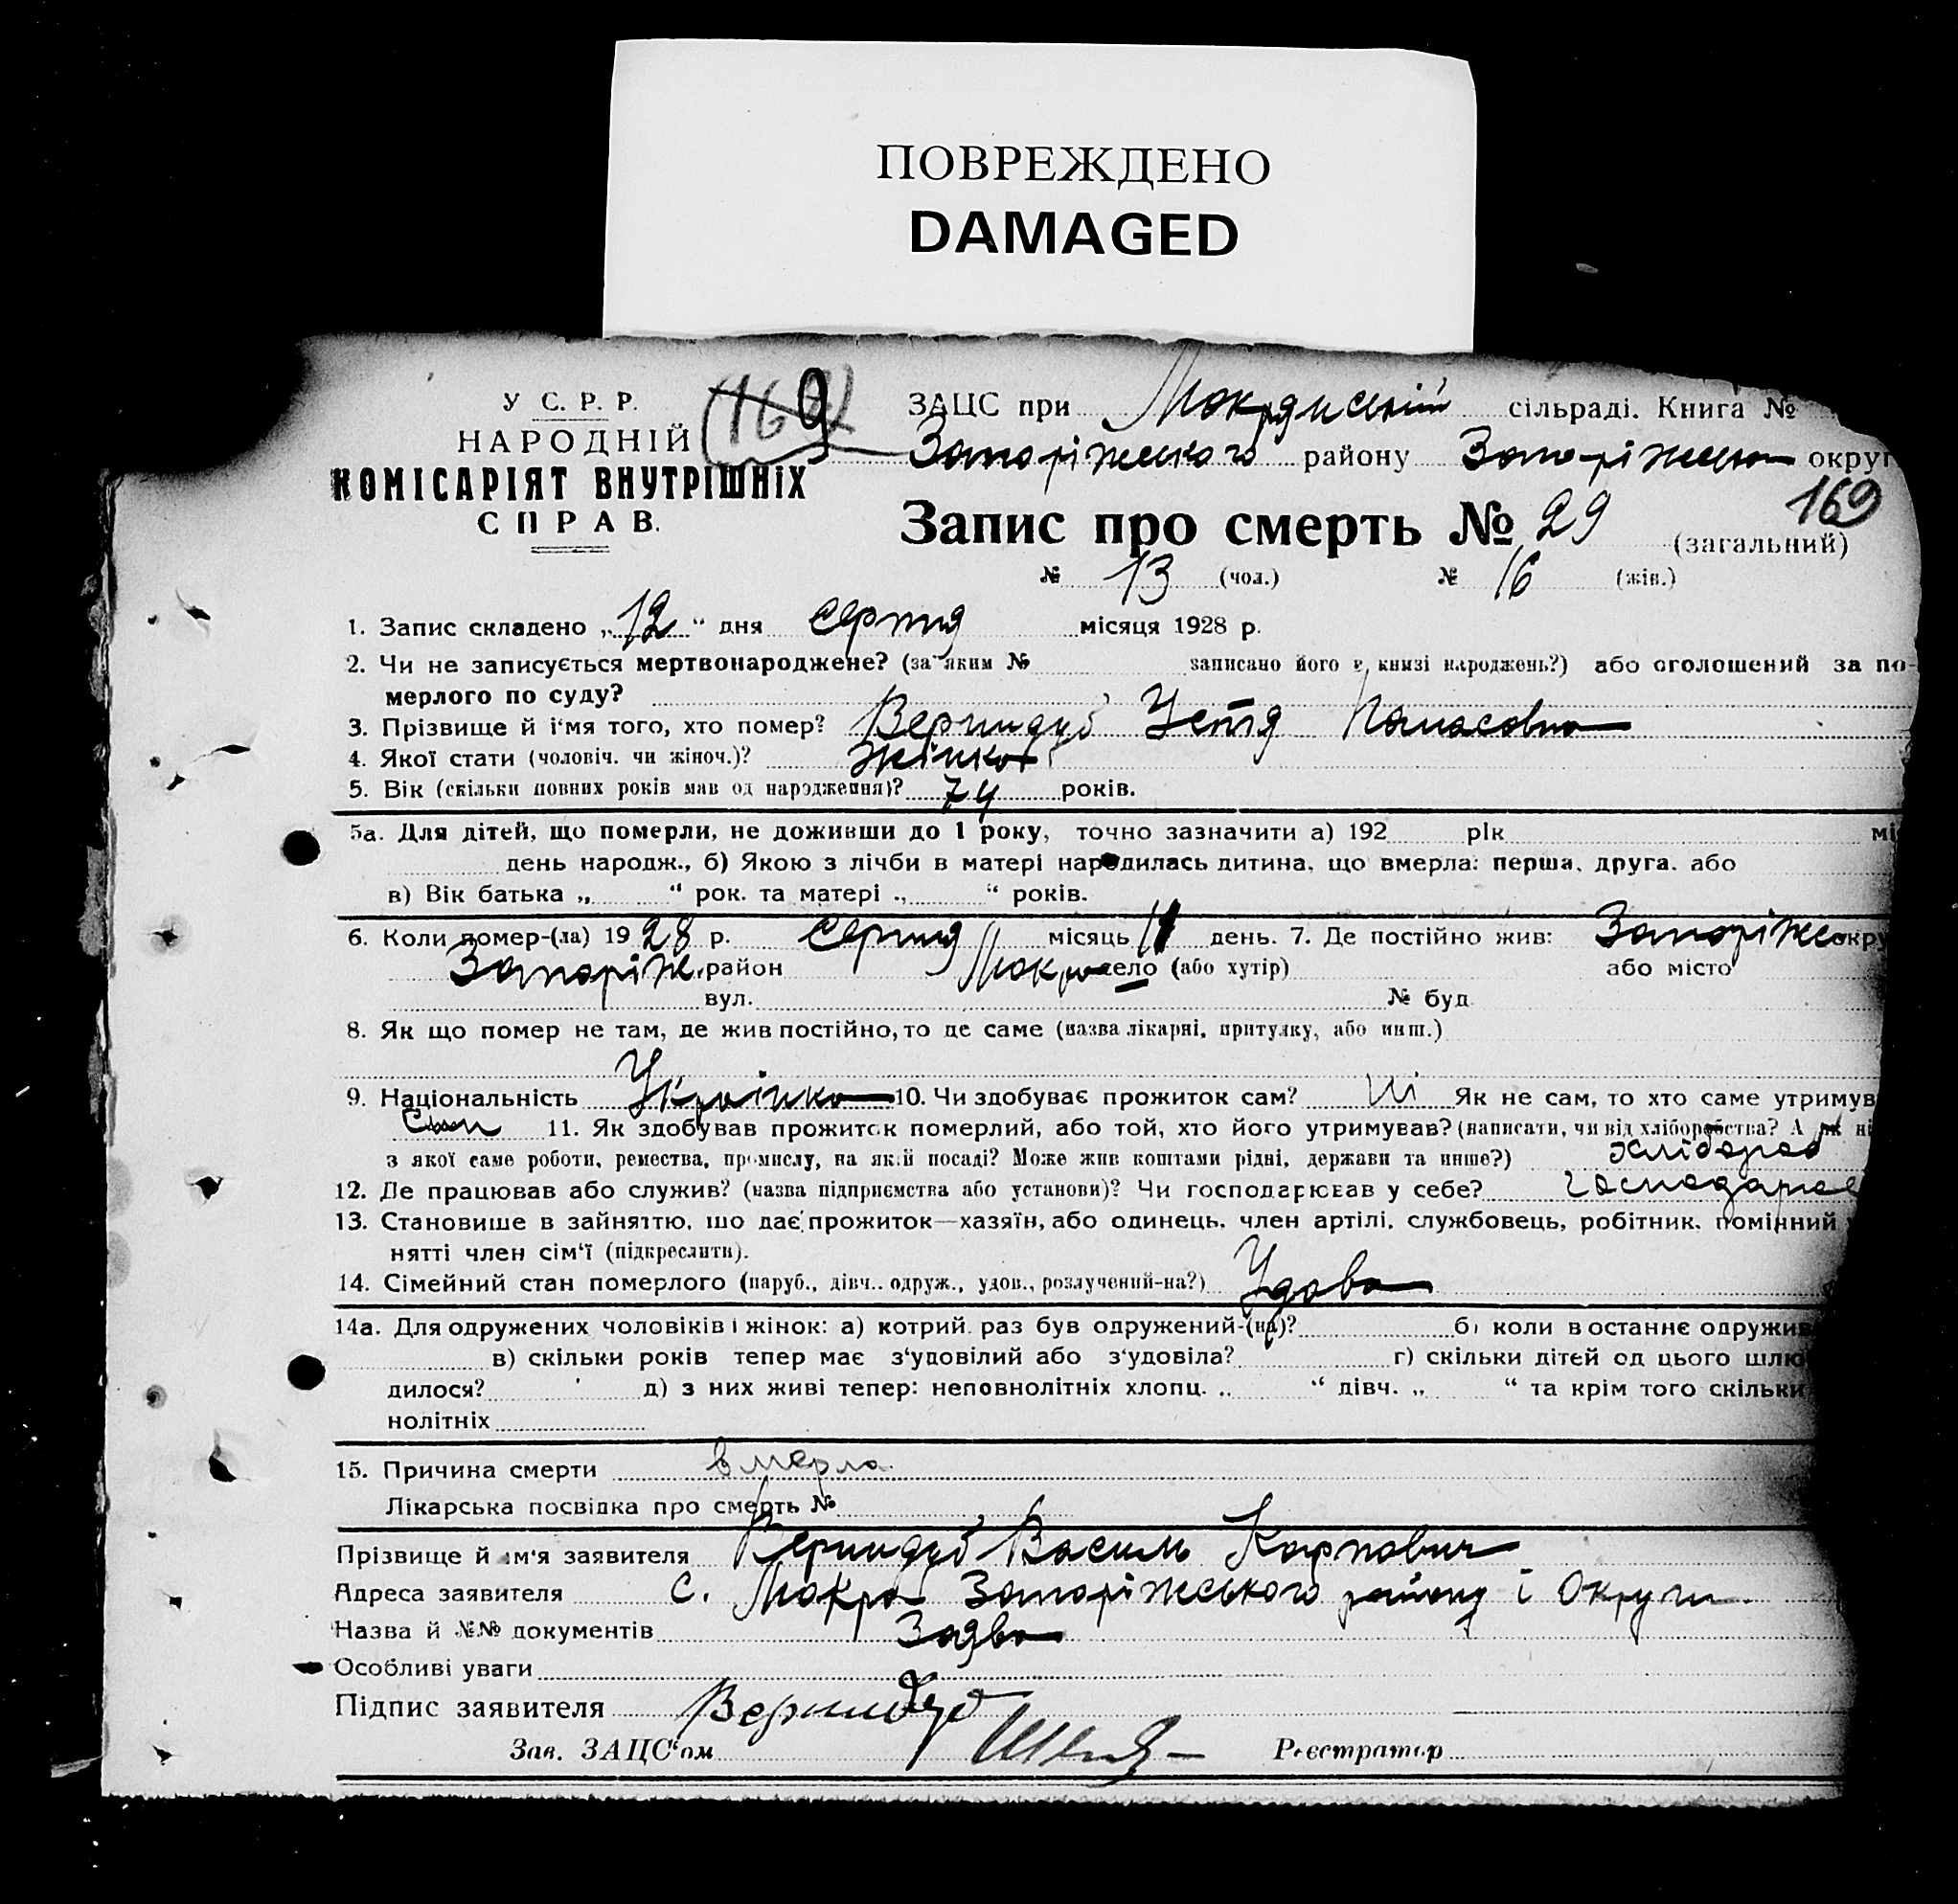 ПОВРЕЖДЕНО
DAMAGED
У С. Р. Р.
НАРОДНІЙ
КОМІСАРІЯТ ВНУТРІШНІХ
СПРАВ.
ЗАЦС при Мокрянській сільраді. Книга №
Запоріжського району Запоріжськ округ
169
Запис про смерть № 29 (загальний)
№ 13 (чол.) № 16 (жін.)
1. Запис складено „12“ дня серпня місяця 1928 р.
2. Чи не записується мертвонароджене? (за яким № записано його в книзі народжень?) або оголошений за по-
мерлого по суду?
3. Прізвище й і'мя того, хто помер? Вернидуб Устя Панасовна
4. Якої стати (чоловіч. чи жіноч.)? жінка
5. Вік (скільки повних років мав од народження)? 74 років.
5а. Для дітей, що померли, не доживши до 1 року, точно зазначити а) 192 рік мі
день народж., б) Якою з лічби в матері народилась дитина, що вмерла: перша, друга, або
в) Вік батька „ “ рок. та матері „ “ років.
6. Коли помер-(ла) 1928 р. серпня місяць 11 день. 7. Де постійно жив: Запоріжс окру
Запоріж. район Мокра село (або хутір) або місто
вул. № буд
8. Як що помер не там, де жив постійно, то де саме (назва лікарні, притулку, або инш.)
9. Національність Українка 10. Чи здобуває прожиток сам? Ні Як не сам, то хто саме утримув
Син 11. Як здобував прожиток померлий, або той, хто його утримував? (написати, чи від хліборобства? А як ні
з якої саме роботи, ремества, промислу, на якій посаді? Може жив коштами рідні, держави та инше?) хлібороб
12. Де працював або служив? (назва підприємства або установи)? Чи господарював у себе? господарює
13. Становише в зайняттю, що дає прожиток—хазяїн, або одинець, член артілі, службовець, робітник, помінний
нятті член сім'ї (підкреслити).
14. Сімейний стан померлого (паруб., дівч.. одруж., удов., розлучений-на?) Удова
14а. Для одружених чоловіків і жінок: а) котрий раз був одружений-(на)? б) коли в останнє одружив
в) скільки років тепер має з'удовілий або з'удовіла? г) скільки дітей од цього шлю
дилося? д) з них живі тепер: неповнолітніх хлопц. „ “ дівч. „ “ та крім того скільки
нолітніх
15. Причина смерти вмерла
Лікарська посвідка про смерть №
Прізвище й ім'я заявителя Вернидуб Василь Карпович
Адреса заявителя с. Мокра Запоріжського району і Округи
Назва й №№ документів Заява
Особливі уваги
Підпис заявителя Вернидуб
Зав. ЗАЦС'ом Реєстратор